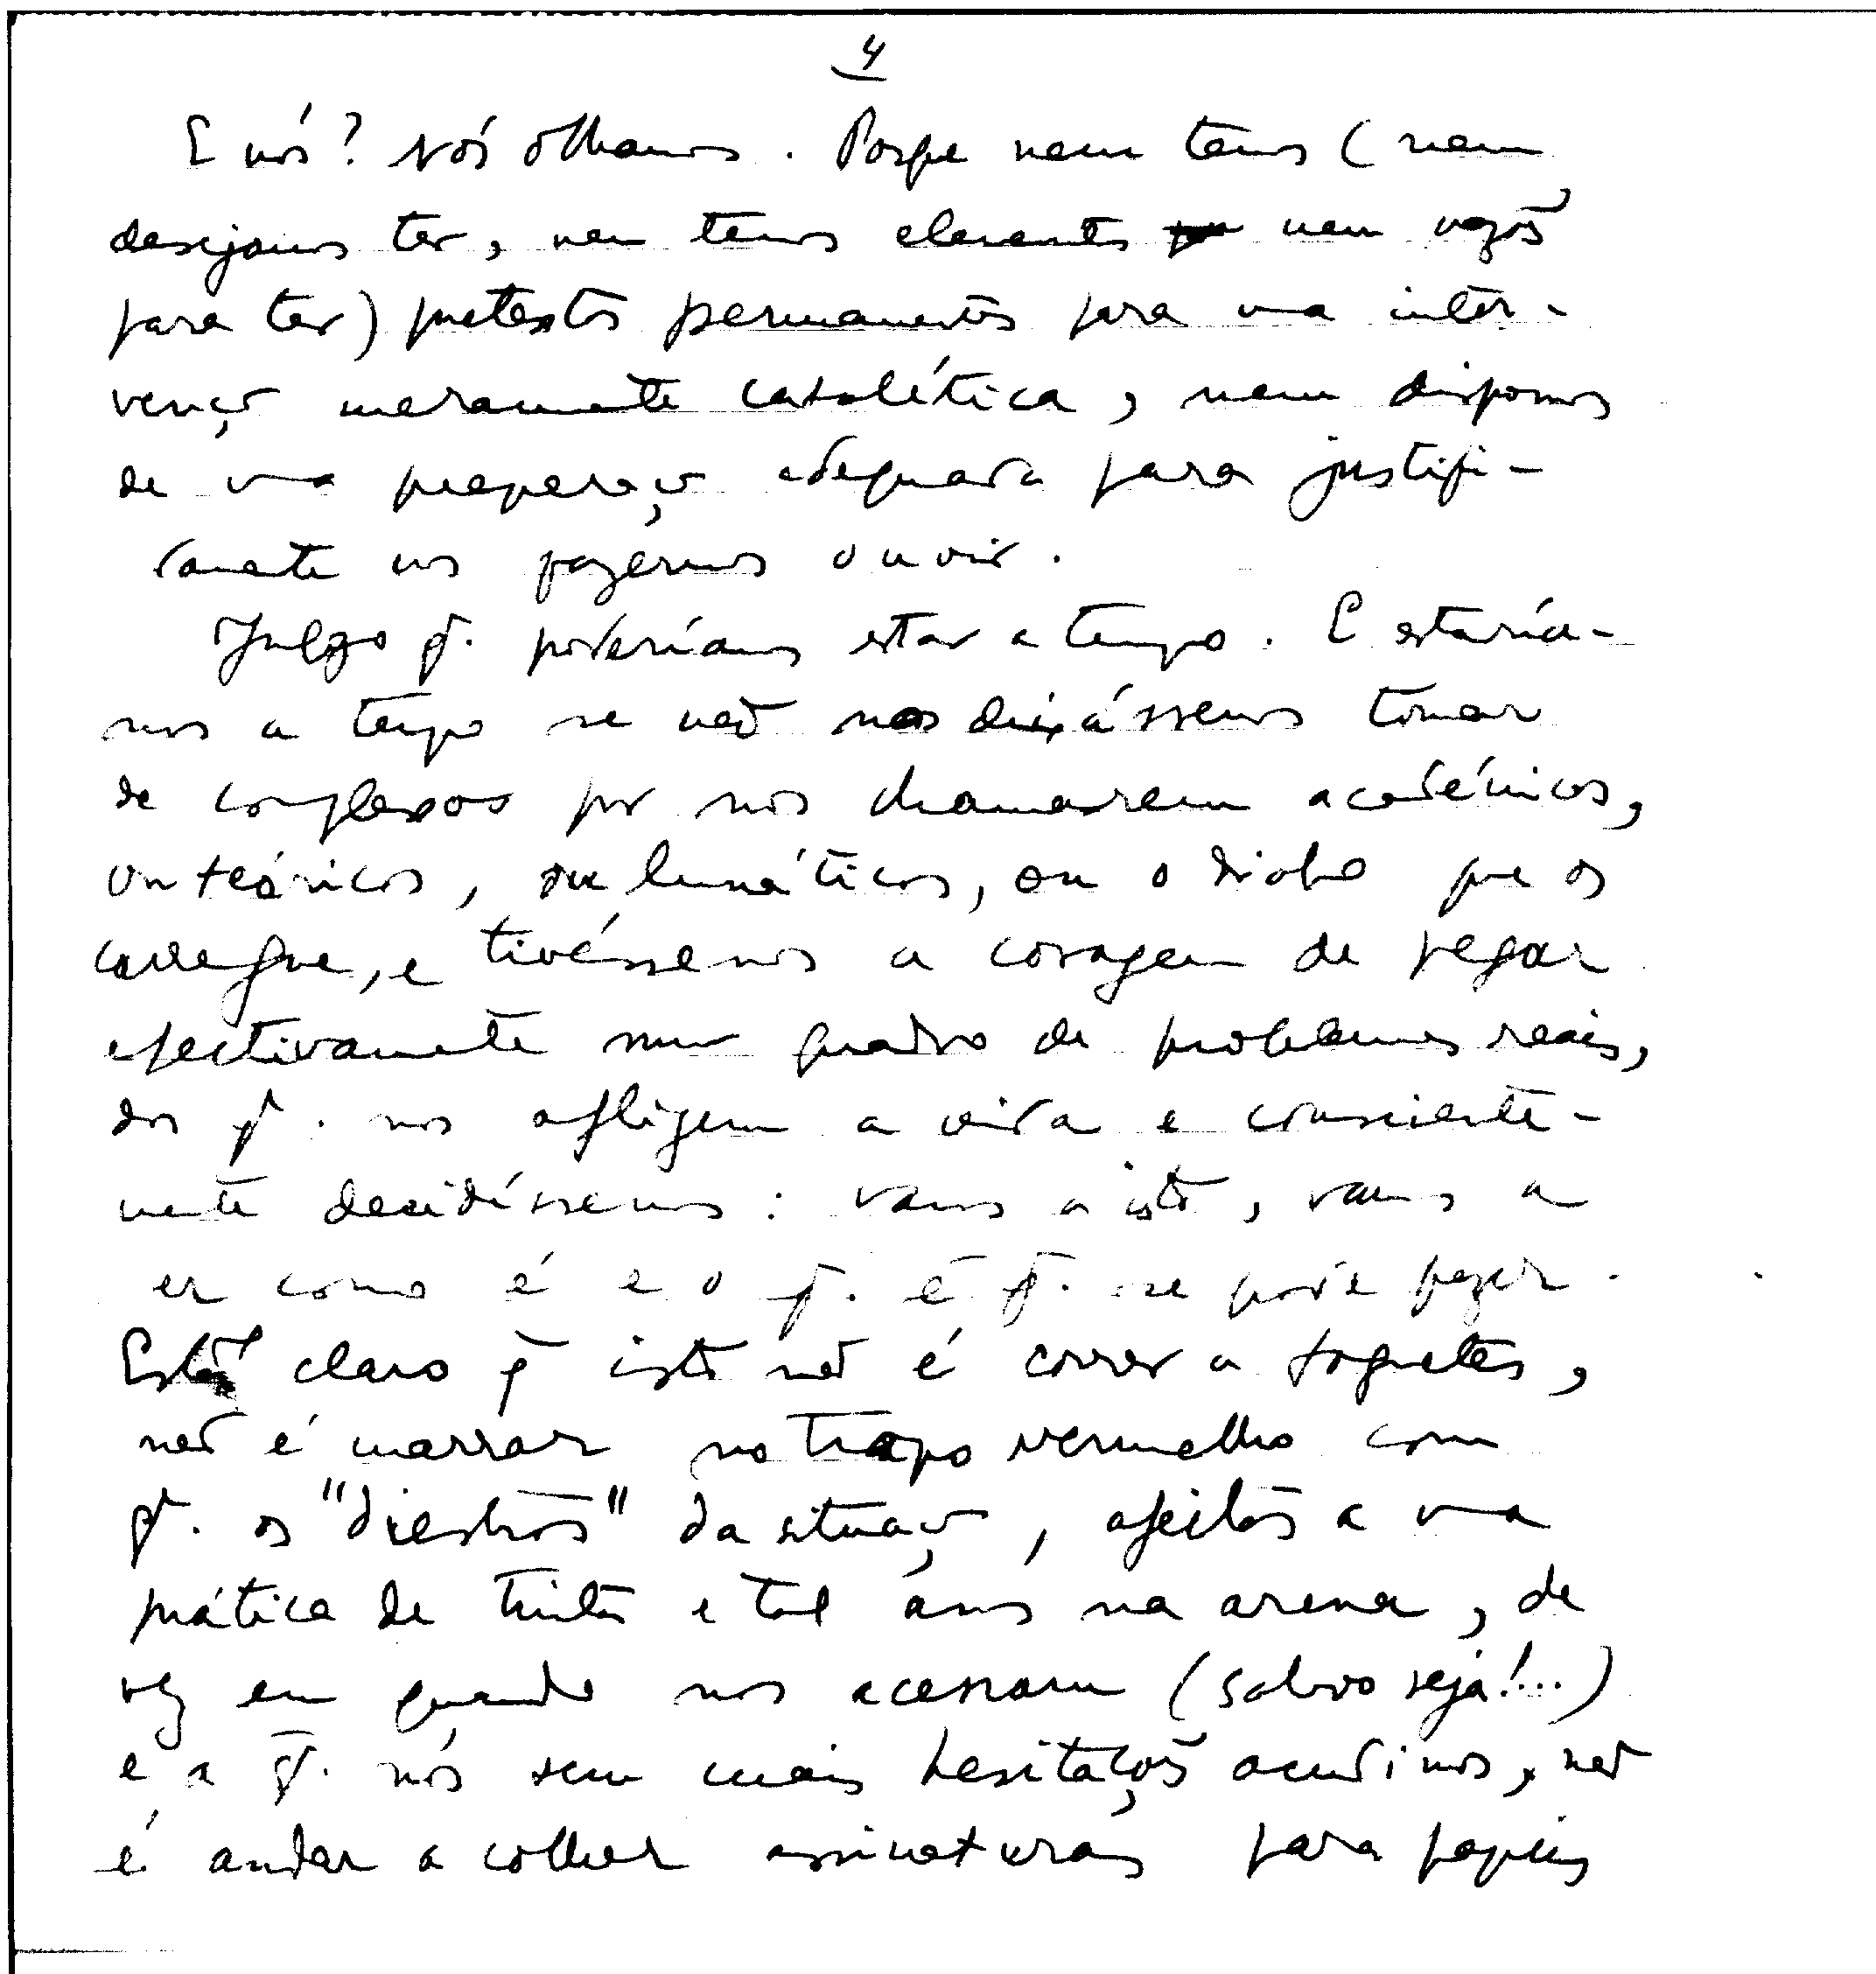 4
E nós? Nós olhamos. Porque nem temos (nem
desejamos ter, nem temos elementos nem razões
para ter) pretextos permanentes para uma inter-
venção meramente catalética, nem dispomos
de uma preparação adequada para justifi-
camente nos fazermos ouvir.
Julgo q. poderíamos estar a tempo. E estaría-
mos a tempo se não nos deixássemos tomar
de complexos por nos chamarem académicos,
ou teóricos, ou lunáticos, ou o diabo que os
carregue, e tivéssemos a coragem de pegar
efectivamente num quadro de problemas reais,
dos q. nos afligem a vida e consciente-
mente decidíssemos: vamos a isto, vamos a
er como é e o q. é q. se pode fazer.
Está claro q̃ isto não é correr a foguetes,
não é marrar no trapo vermelho com
q. os "diestros" da situação, afeitos a uma
prática de trinta e tal anos na arena, de
vez em quando nos acenam (salvo seja!...)
e a q. nós sem mais hesitações acudimos, não
é andar a colher assinaturas para papéis